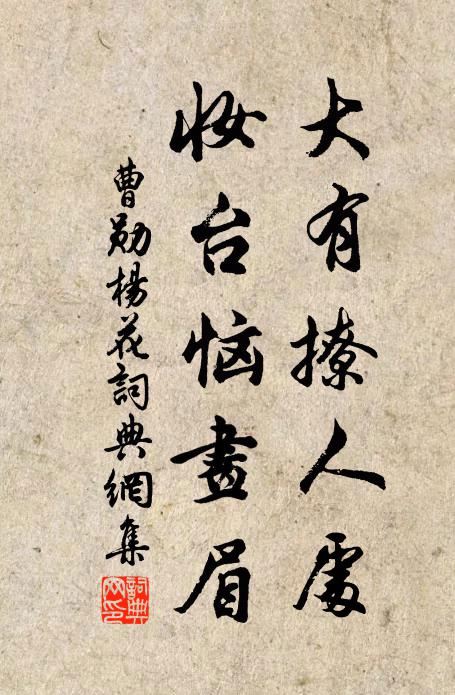 大有撩人處
妝台惱畫眉
曹勛楊花詞典網集
詞典網印